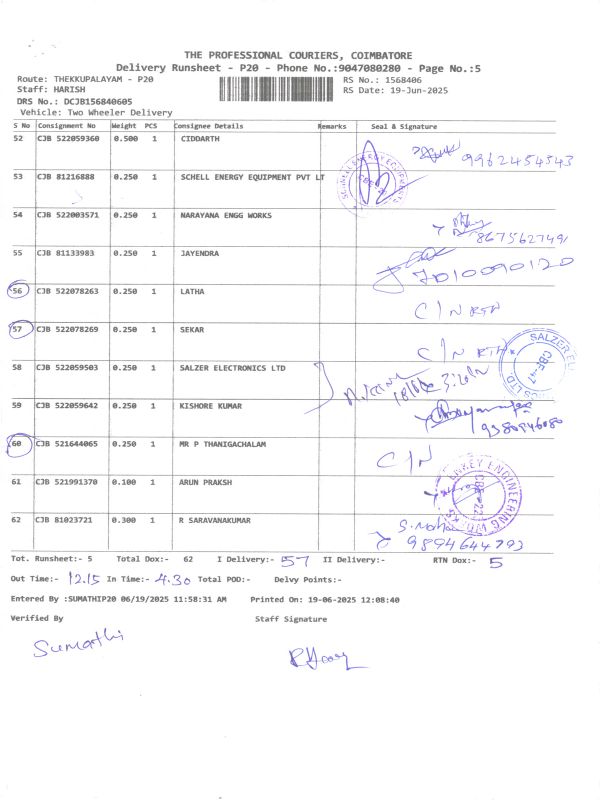 THE PROFESSIONAL COURIERS, COIMBATORE
Delivery Runsheet - P20 - Phone No.:9047080280 - Page No.:5
Route: THEKKUPALAYAM - P20 RS No.: 1568406
Staff: HARISH RS Date: 19-Jun-2025
DRS No.: DCJB156840605
Vehicle: Two Wheeler Delivery
S No Consignment No Weight PCS Consignee Details Remarks Seal & Signature
52 CJB 522059360 0.500 1 CIDDARTH 9962454543
53 CJB 81216888 0.250 1 SCHELL ENERGY EQUIPMENT PVT LT
54 CJB 522003571 0.250 1 NARAYANA ENGG WORKS 8675627491
55 CJB 81133983 0.250 1 JAYENDRA
56 CJB 522078263 0.250 1 LATHA C/N RTN
57 CJB 522078269 0.250 1 SEKAR C/N RTN
58 CJB 522059503 0.250 1 SALZER ELECTRONICS LTD
59 CJB 522059642 0.250 1 KISHORE KUMAR
60 CJB 521644065 0.250 1 MR P THANIGACHALAM C/N
61 CJB 521991370 0.100 1 ARUN PRAKSH
62 CJB 81023721 0.300 1 R SARAVANAKUMAR 9894644793
Tot. Runsheet:- 5 Total Dox:- 62 I Delivery:- 57 II Delivery:- RTN Dox:- 5
Out Time:- 12.15 In Time:- 4.30 Total POD:- Delvy Points:-
Entered By :SUMATHIP20 06/19/2025 11:58:31 AM Printed On: 19-06-2025 12:08:40
Verified By Staff Signature
Sumathi